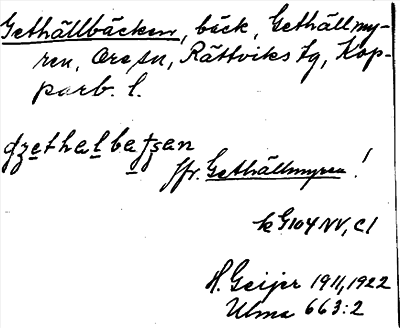 Gethällbäcken, bäck, Gethällmy-
ren, Ore sn, Rättviks tg, Kop-
parb. l.
jfr. Gethällmyren!
k G104 NV, C1
H. Geijer 1911, 1922
Ulma 663:2